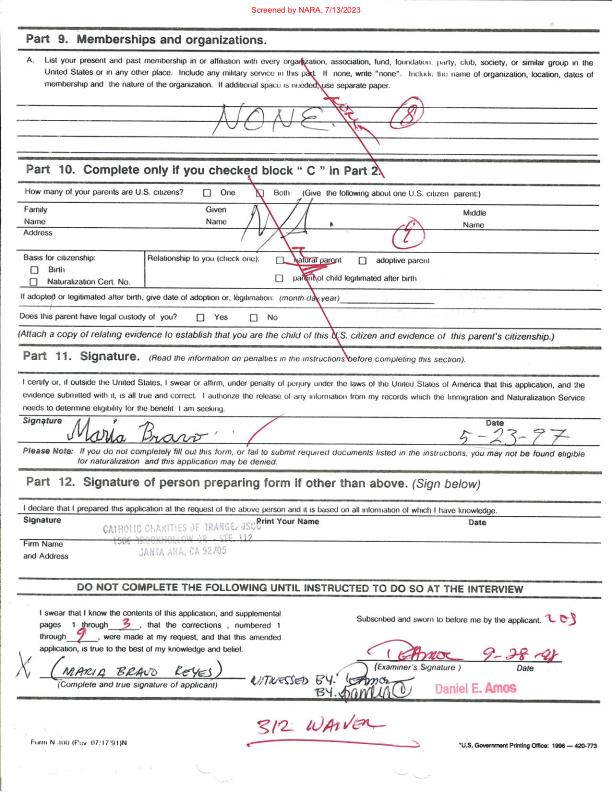 Screened by NARA, 7/13/2023
Part 9. Memberships and organizations.
A. List your present and past membership in or affiliation with every organization, association, fund, foundation, party, club, society, or similar group in the
United States or in any other place. Include any military service in this part. If none, write "none". Include the name of organization, location, dates of
membership and the nature of the organization. If additional space is needed, use separate paper.
NONE.
8
Part 10. Complete only if you checked block " C " in Part 2.
How many of your parents are U.S. citizens? One Both (Give the following about one U.S. citizen parent:)
Family Given Middle
Name Name Name
N/A.
Address
9
Basis for citizenship: Relationship to you (check one): natural parent adoptive parent
Birth
Naturalization Cert. No. parent of child legitimated after birth
If adopted or legitimated after birth, give date of adoption or, legitimation: (month-day-year)
Does this parent have legal custody of you? Yes No
(Attach a copy of relating evidence to establish that you are the child of this U.S. citizen and evidence of this parent's citizenship.)
Part 11. Signature. (Read the information on penalties in the instructions before completing this section).
I certify or, if outside the United States, I swear or affirm, under penalty of perjury under the laws of the United States of America that this application, and the
evidence submitted with it, is all true and correct. I authorize the release of any information from my records which the Immigration and Naturalization Service
needs to determine eligibility for the benefit I am seeking.
Signature Date
Maria Bravo 5-23-97
Please Note: If you do not completely fill out this form, or fail to submit required documents listed in the instructions, you may not be found eligible
for naturalization and this application may be denied.
Part 12. Signature of person preparing form if other than above. (Sign below)
I declare that I prepared this application at the request of the above person and it is based on all information of which I have knowledge.
Signature Print Your Name Date
CATHOLIC CHARITIES OF ORANGE/JSCC
1506 BROOKHOLLOW DR - STE. 112
Firm Name
and Address
SANTA ANA, CA 92705
DO NOT COMPLETE THE FOLLOWING UNTIL INSTRUCTED TO DO SO AT THE INTERVIEW
I swear that I know the contents of this application, and supplemental
pages 1 through 3, that the corrections, numbered 1
through 9, were made at my request, and that this amended
application, is true to the best of my knowledge and belief.
Subscribed and sworn to before me by the applicant. 203
9-28-98
(Examiner's Signature) Date
X (MARIA BRAVO REYES)
(Complete and true signature of applicant)
WITNESSED BY:
BY:
Daniel E. Amos
312 WAIVER
Form N-400 (Rev. 07/17/91)N
*U.S. Government Printing Office: 1996 — 420-773